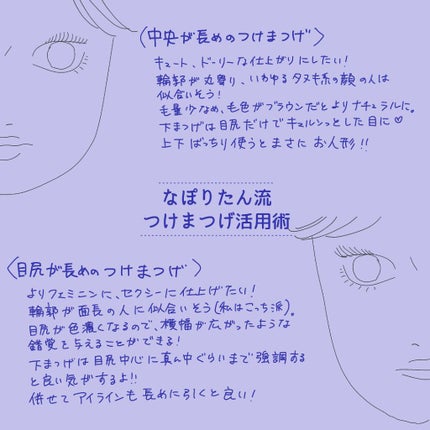 〈中央が長めのつけまつげ〉
キュート、ドーリーな仕上がりにしたい！
輪郭が丸寄り、いわゆるタヌキ系の顔の人は
似合いそう！
毛量少なめ、毛色がブラウンだとよりナチュラルに。
下まつげは目尻だけでキュルンっとした目に♡
上下ばっちり使うとまさに お人形!!
なぽりたん流
つけまつげ活用術
〈目尻が長めのつけまつげ〉
よりフェミニンに、セクシーに仕上げたい！
輪郭が面長の人に似合いそう(私はこっち派)。
目尻が色濃くなるので、横幅が広がったような
錯覚を与えることができる！
下まつげは目尻中心に真ん中ぐらいまで強調する
と良い気がするよ!!
併せてアイラインも長めに引くと良い！